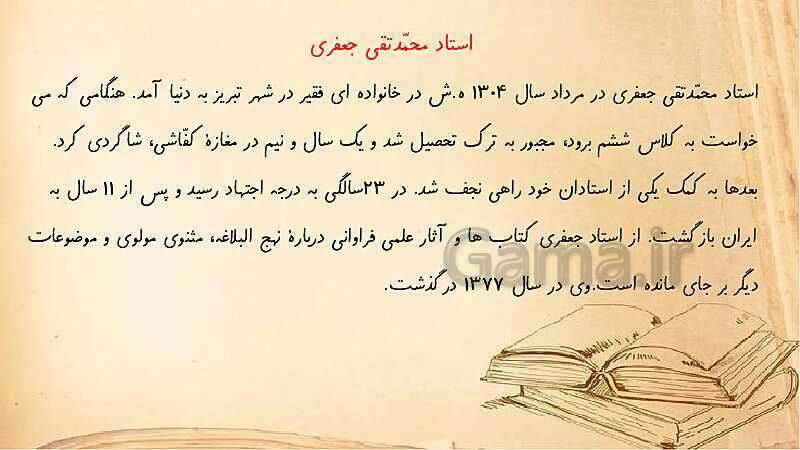 استاد محمّدتقی جعفری
استاد محمّدتقی جعفری در مرداد سال ۱۳۰۴ ه.ش در خانواده ای فقیر در شهر تبریز به دنیا آمد. هنگامی که می
خواست به کلاس ششم برود، مجبور به ترک تحصیل شد و یک سال و نیم در مغازهٔ کفّاشی، شاگردی کرد.
بعدها به کمک یکی از استادان خود راهی نجف شد. در ۲۳سالگی به درجه اجتهاد رسید و پس از ۱۱ سال به
ایران بازگشت. از استاد جعفری کتاب ها و آثار علمی فراوانی دربارهٔ نهج البلاغه، مثنوی مولوی و موضوعات
دیگر بر جای مانده است.وی در سال ۱۳۷۷ درگذشت.
Gama.ir